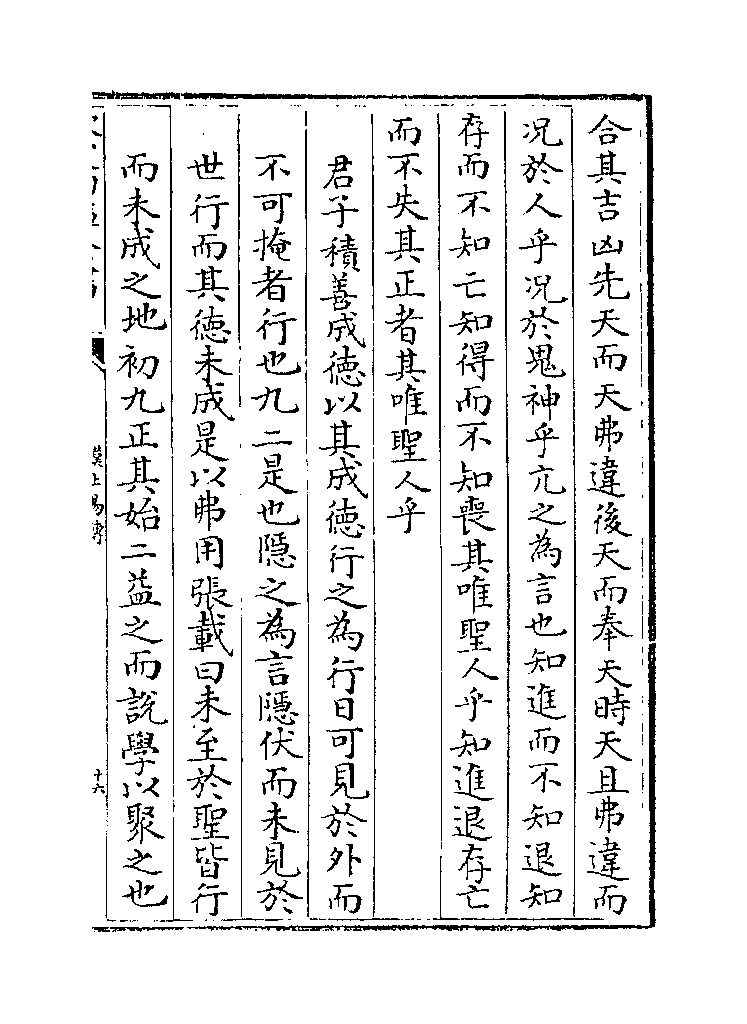 合其吉凶先天而天弗違後天而奉天時天且弗違而
况於人乎况於鬼神乎亢之為言也知進而不知退知
存而不知亡知得而不知喪其唯聖人乎知進退存亡
而不失其正者其唯聖人乎
君子積善成德以其成德行之為行日可見於外而
不可掩者行也九二是也隱之為言隱伏而未見於
世行而其德未成是以弗用張載曰未至於聖皆行
而未成之地初九正其始二益之而説學以聚之也
漢上易傳
十六